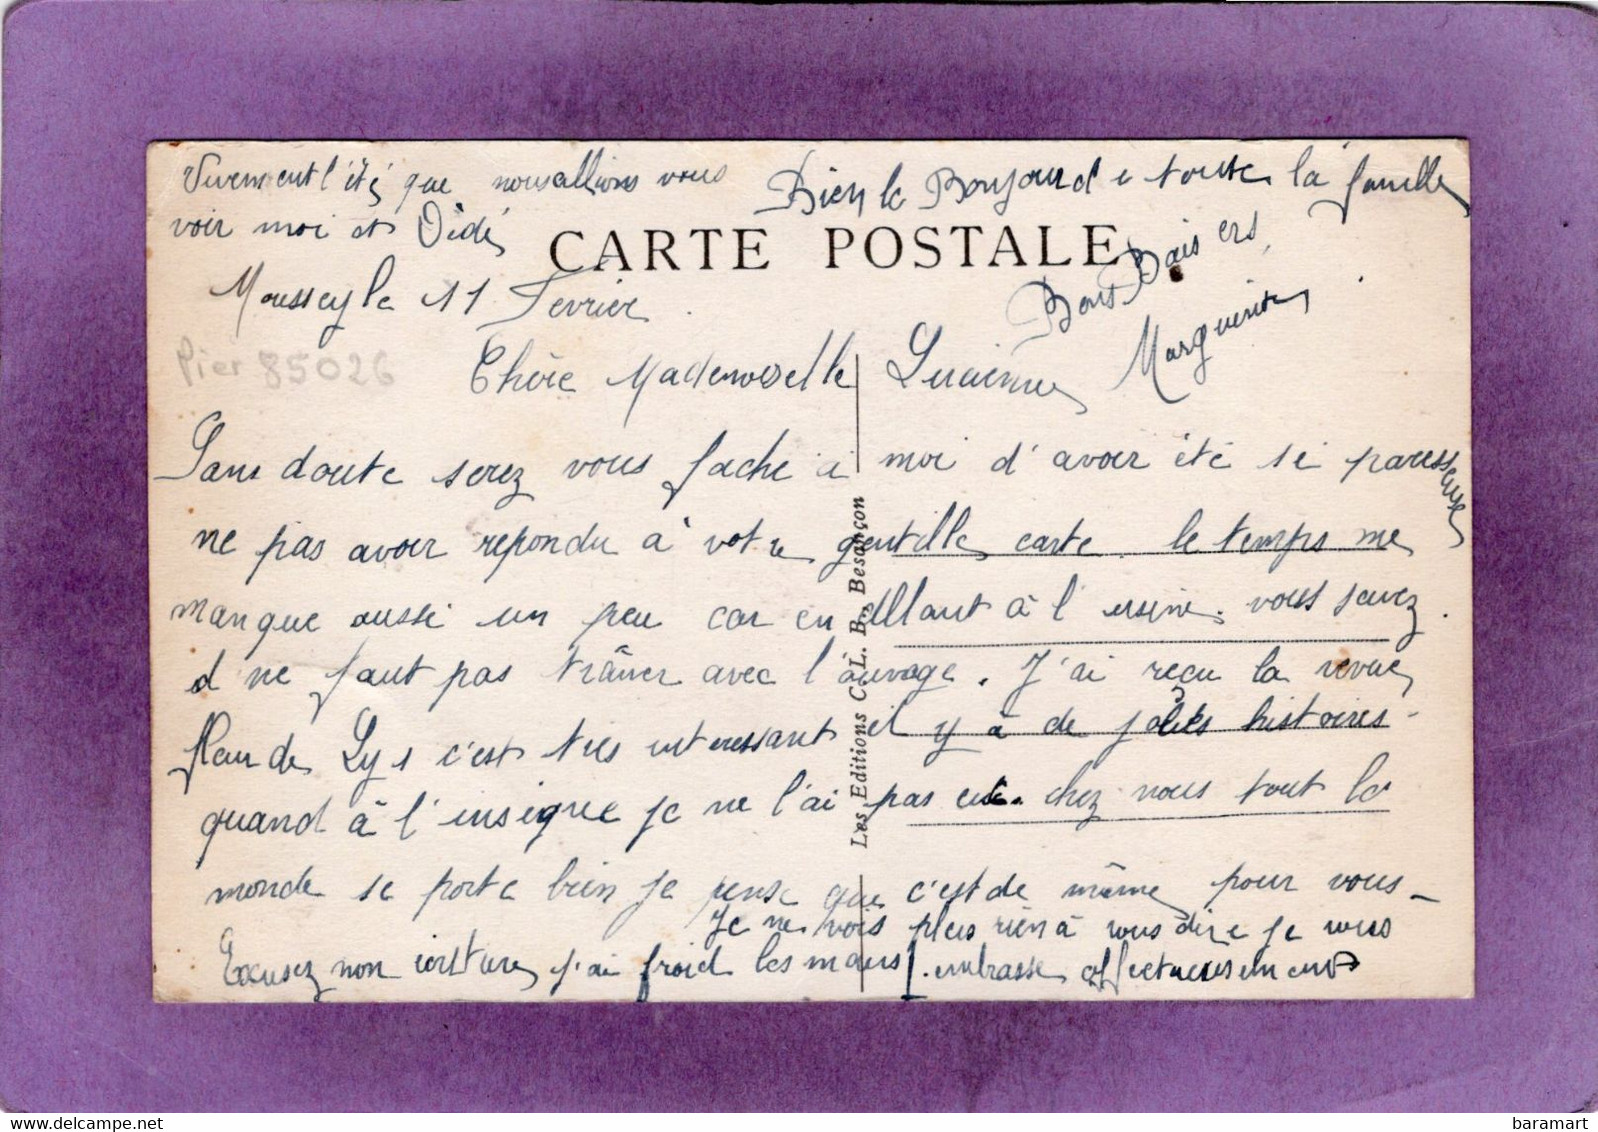 Vivement l'été que nous allions vous
voir moi et Dédé
Bien le Bonjour d e toute la famille
CARTE POSTALE
Bons Baisers
Marguerite
Moussey le 11 Fevrier.
Pier 85026
Chère Mademoiselle Lucienne
Sans doute serez vous faché à moi d'avoir été si paresseuse
ne pas avoir repondu à votre gentille carte. le temps me
manque aussi un peu car en allant à l'usine. vous savez.
il ne faut pas traîner avec l'ouvrage. J'ai reçu la revue
fleur de Lys c'est tres interessant il y à de jolies histoires -
quand à l'insigne je ne l'ai pas eu. chez nous tout le
monde se porte bien je pense que c'est de même pour vous -
Je ne vois plus rien à vous dire je vous
embrasse affectueusement
Excusez mon ecriture j'ai froid les mains.
Les Editions C. L. B., Besançon
baramart